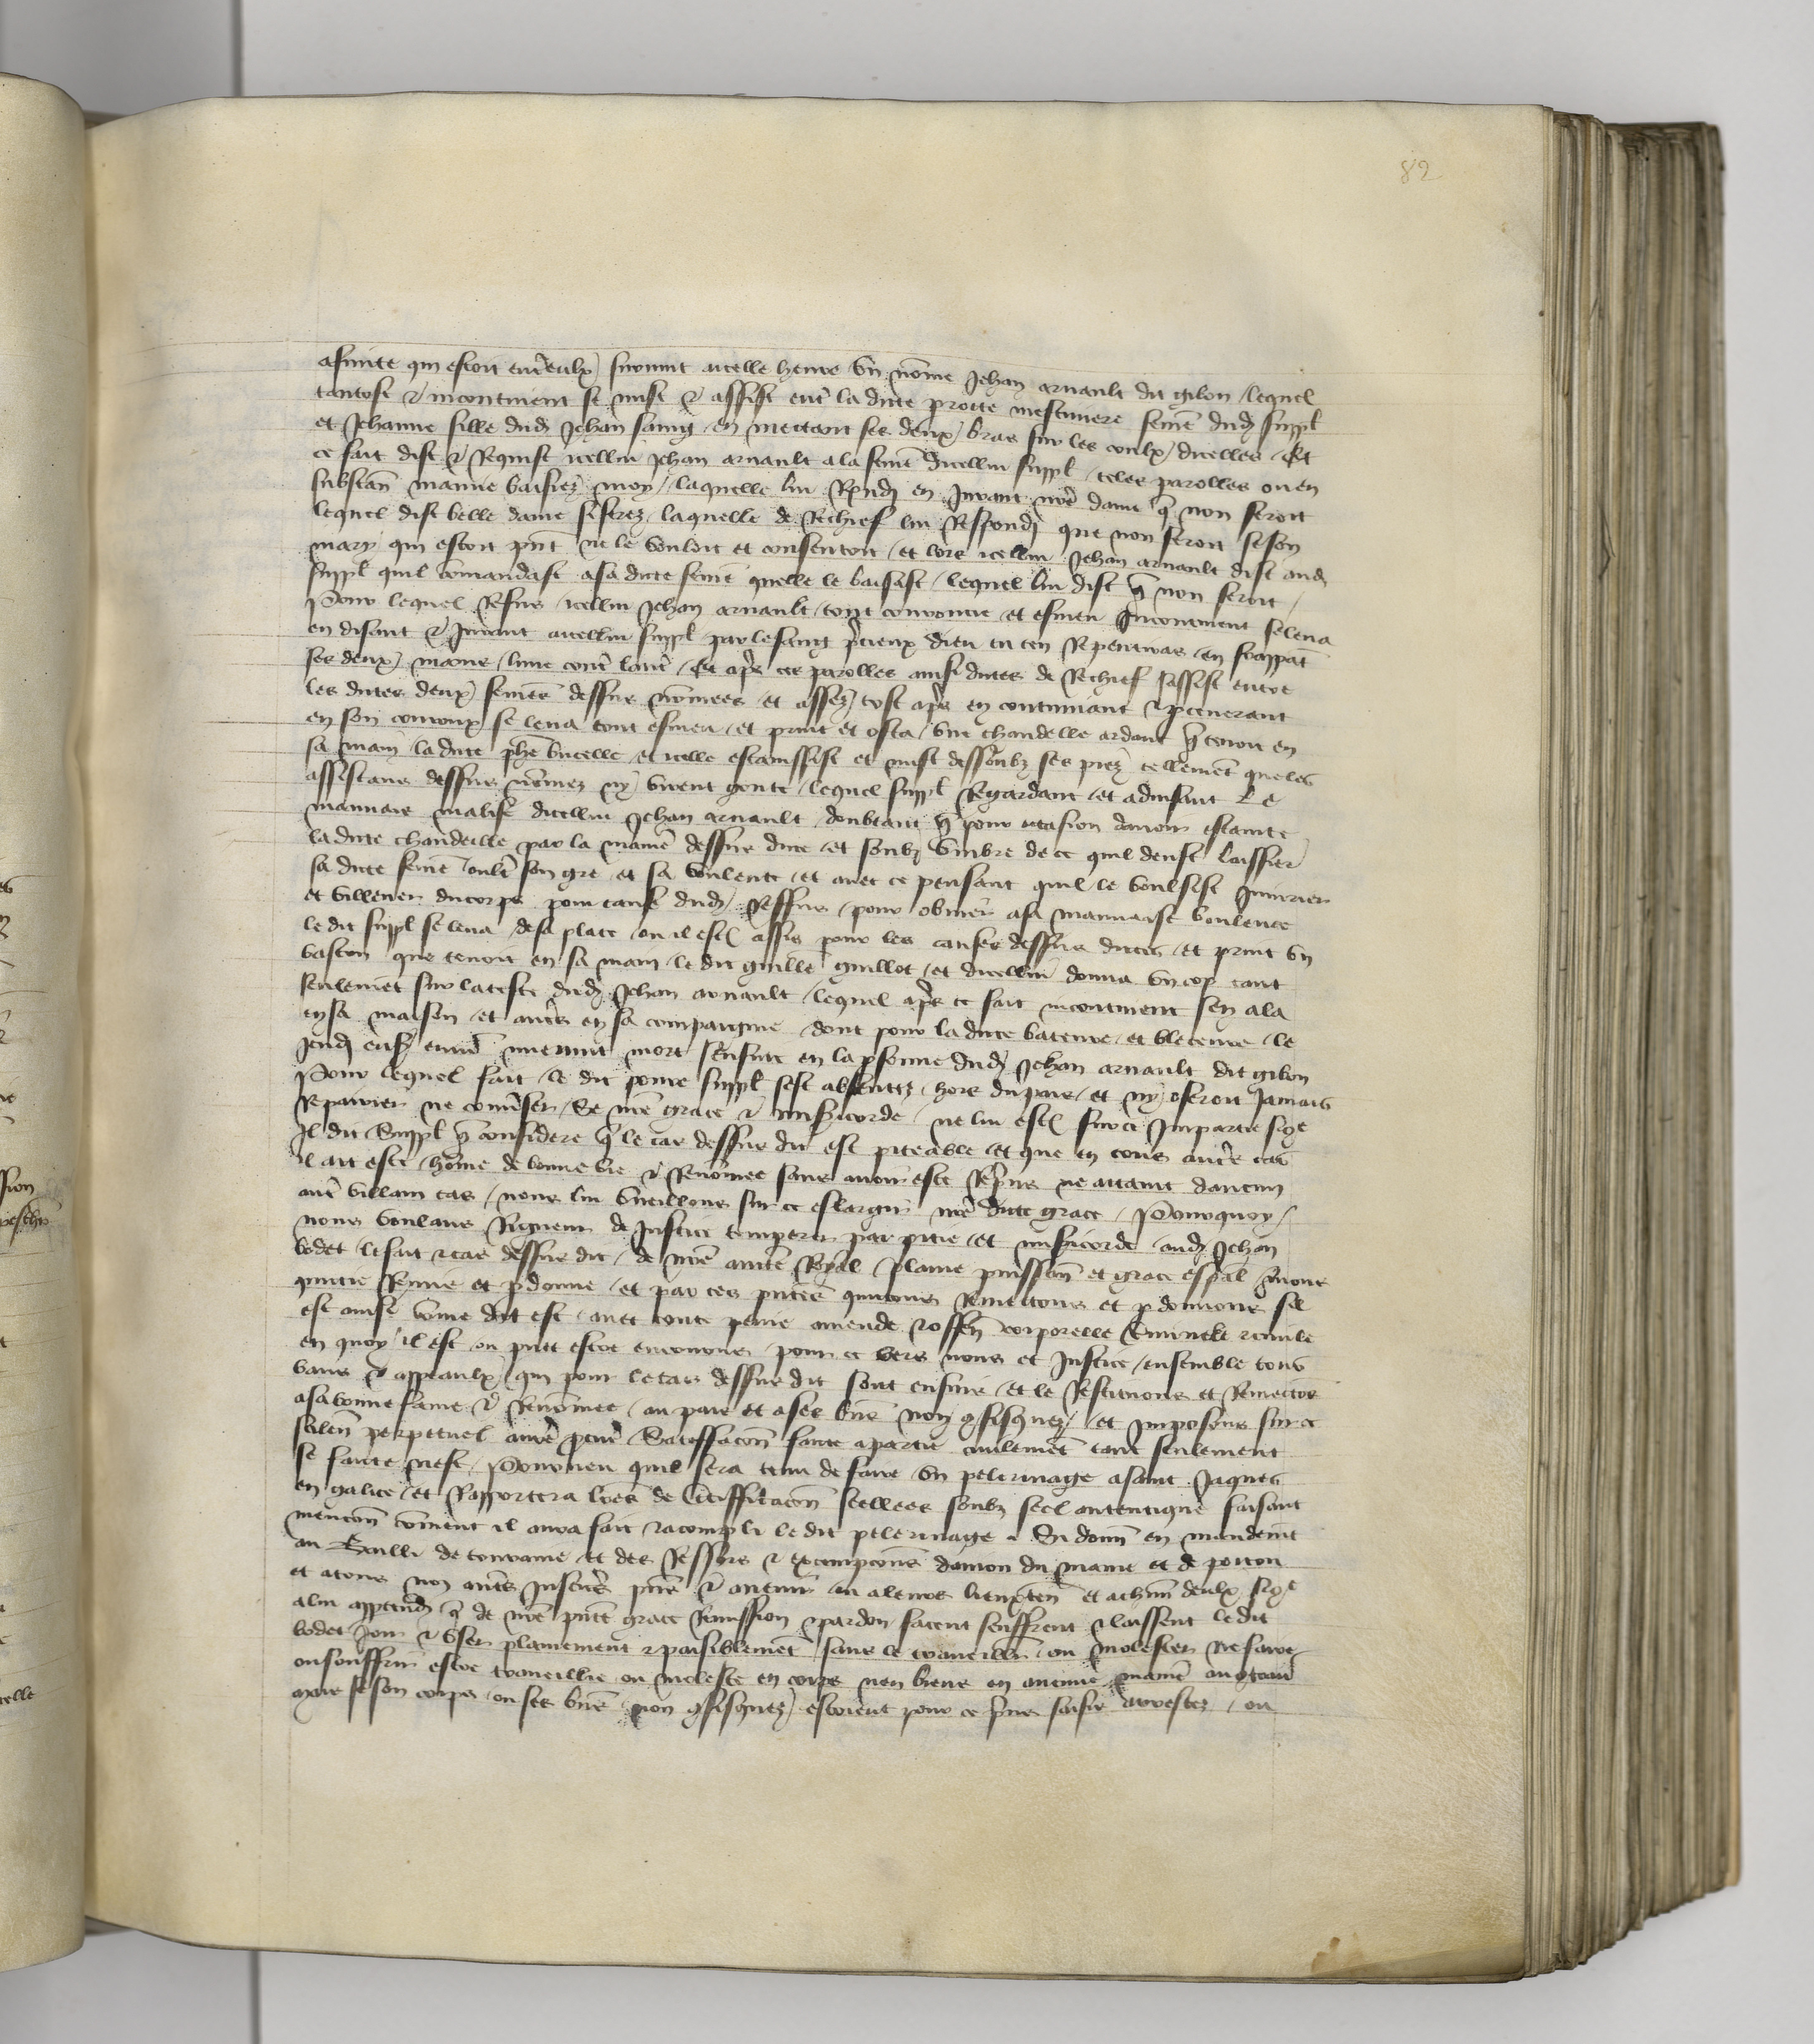 82
afinite qui estoit entr'eulx survint a icelle heure un nomme Jehan Arnault dit Gibon lequel
tantost et incontinent se mist et assist entre la dicte Perote mestiviere femme dud. suppl.
et Jehanne fille dud. Jehan en mettant ses deux bras sur les coulx d'icelles Et
ce fait dist et requist icellui Jehan Arnault a la femme d'icellui suppl. teles parolles ou en
substance m'amie baisiez moy laquelle lui respondi en jurant nostre dame que non feroit
lequel dist belle dame si ferez laquelle de rechief lui respondi que non feroit se son
mary qui estoit present ne le vouloit et consentoit et lors icellui Jehan Arnault dist aud.
suppl. qu'il commandast a sa dicte femme qu'elle le baisast lequel lui dist que non feroit
Pour lequel refus icellui Jehan Arnault tout courroucie et esmeu incontinent se leva
en disant et jurant a icellui suppl. par le sang precieux Dieu tu t'en repentiras en frappant
ses deux mains l'une contre l'autre Et apres ces parolles ainsi dictes de rechief s'assist entre
les dictes deux femmes dessus nommees et assez tost apres en continuant et perseverant
en son courroux se leva tout esmeu et print et osta une chandelle ardant que tenoit en
sa main la dicte et icelle estaingnist et mist dessoubz ses piez tellement que les
assistans dessus nommez n'y virent goute lequel suppl. regardant et advisant le
mauvais malice d'icellui Jehan Arnault doubtant que pour occasion d'avoir estainte
la dicte chandeille par la maniere dessus dicte et soubz umbre de ce qu'il deust laissier
sa dicte femme oultre son gre et sa voulente et avec ce pensant qu'il le voulsist injurier
et villener du corps pour cause dud. reffus pour obvier a sa mauvaise voulente
le dit suppl. se leva de sa place ou il estoit assis pour les causes dessus dictes et print un
baston que tenoit en sa main le dit Guille Guillot et d'icellui donna un cop tant
seulement sur la teste dud. Jehan Arnault lequel apres ce fait incontinent s'en ala
en sa maison et autres en sa compaignie dont pour la dicte bateure et bleceure le
jeudi ensuivant environ mienuit mort s'ensuit en la personne dud. Jehan Arnault dit Gibon
Pour lequel fait le dit povre suppl. s'est absentez hors du pais et n'y oseroit jamais
reparier ne converser se nostre grace et misericorde ne lui estoit sur ce impartie si
Il dit suppl. que considere que le cas dessus dit est piteable et que en tous autres cas
il ait este homme de bonne vie et renommee sans avoir este repris ne attaint d'aucun
autre villain cas nous lui vueillons sur ce eslargir nostre dicte grace Pourquoy
nous voulans rigueur de justice temperer par pitie et misericorde aud. Jehan
Bodet le fait et cas dessus dit de nostre auctorite royal plaine puissance et grace especial avons
quictie remis et pardonne et par ces presentes quictons remettons et pardonnons s'il
est ainsi comme dit est avec toute peine amende et offense corporelle criminele et civile
en quoy il est ou puet estre encourus pour ce vers nous et justice ensemble tous
bans et appeaulx qui pour le cas dessus dit sont ensuis et le restituons et remettons
a sa bonne fame et renommee au pais et a ses biens non confisquez et imposons sur ce
silence perpetuel a nostre procureur satisfacion faicte a partie civilement tant seulement
se faicte n'est Pourveu qu'il sera tenu de faire un pelerinage a saint Jaques
en Galice et rapportera lettres de certifficacion seellees soubz seel autentique faisant
mencion comment il aura fait et acompli le dit pelerinage Si donnons en mandement
au bailli de Touraine et des ressors et exempcions d'Anjou du Maine et de Poitou
et a tous noz autres justiciers presens et avenir ou a leurs lieuxtenans et a chascun d'eulx si comme
a lui appartendra que de nostre presente grace remission et pardon facent seuffrent et laissent le dit
Bodet joir et user plainement et paisiblement sans le traveillier ou molester ne faire
ou souffrir estre traveillie ou moleste en corps n'en biens en aucune maniere au contraire
mais se son corps ou ses biens non confisquez estoient pour ce prins saisis arrestez ou